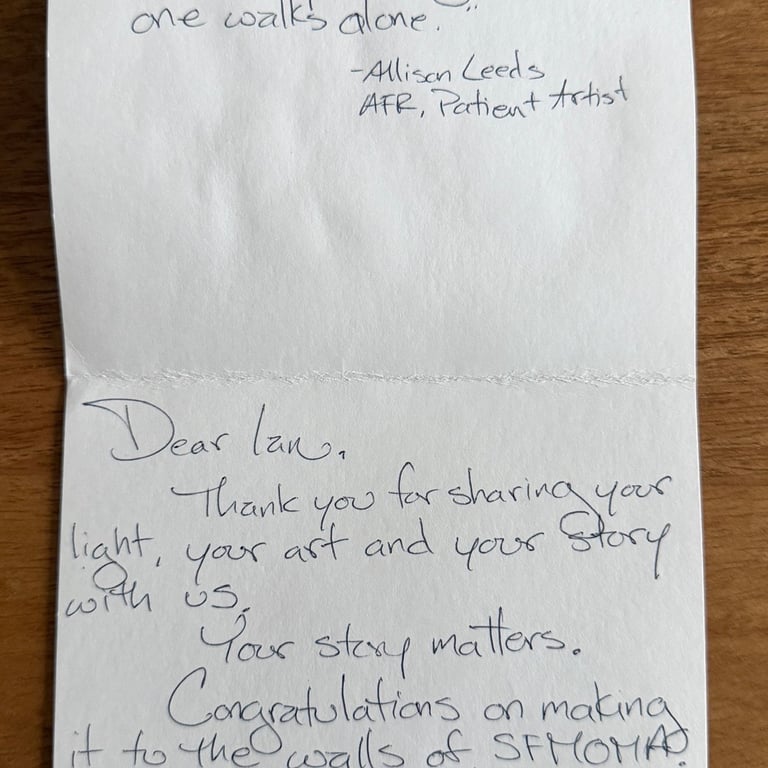 one walks alone."
-Allison Leeds
AFR, Patient Artist
Dear Ian,
Thank you for sharing your
light, your art and your story
with us.
Your story matters.
Congratulations on making
it to the walls of SFMOMA!